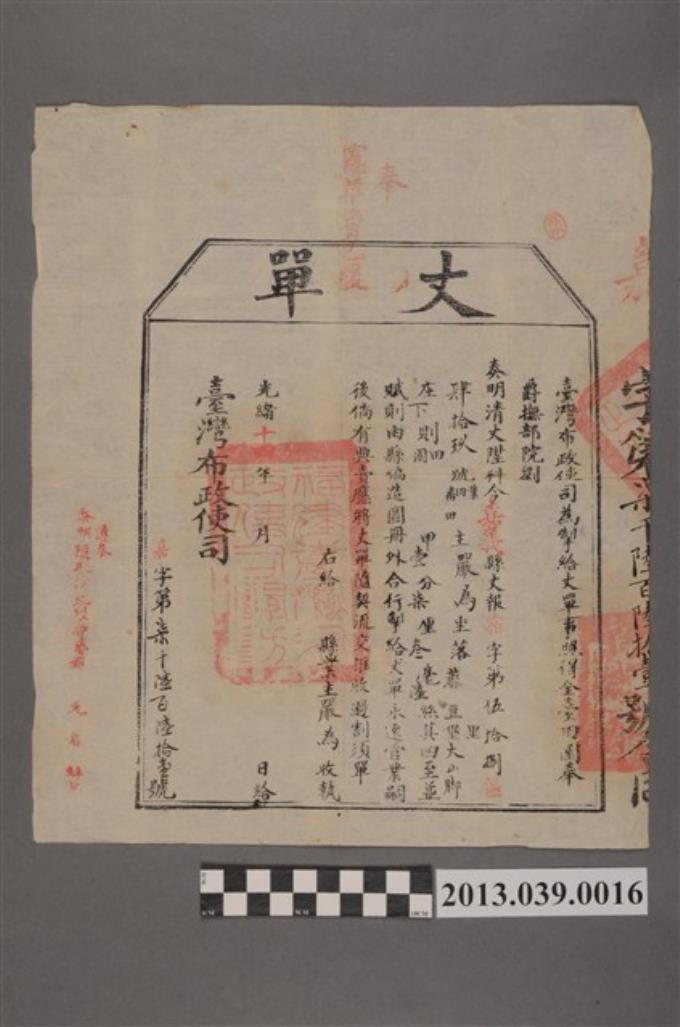 丈單
臺灣布政使司為掣給丈單事照得全臺田園奉
爵撫部院劉
奏明清丈陞科今嘉義縣丈報 字第伍拾捌
肆拾玖號 田主嚴為坐落 豆堡大山脚
里
在下則田園 甲壹分柒厘叁毫陸絲其四至並
賦則由縣偏造圖冊外合行掣給丈單永遠管業嗣
後倘有典賣應將丈單隨契流交推收過割須單
右給 縣業主嚴為收執
光緒十 年 月 日給
臺灣布政使司
嘉字第柒千陸百陸拾壹號
柒千陸百陸拾壹號
奉
2013.039.0016